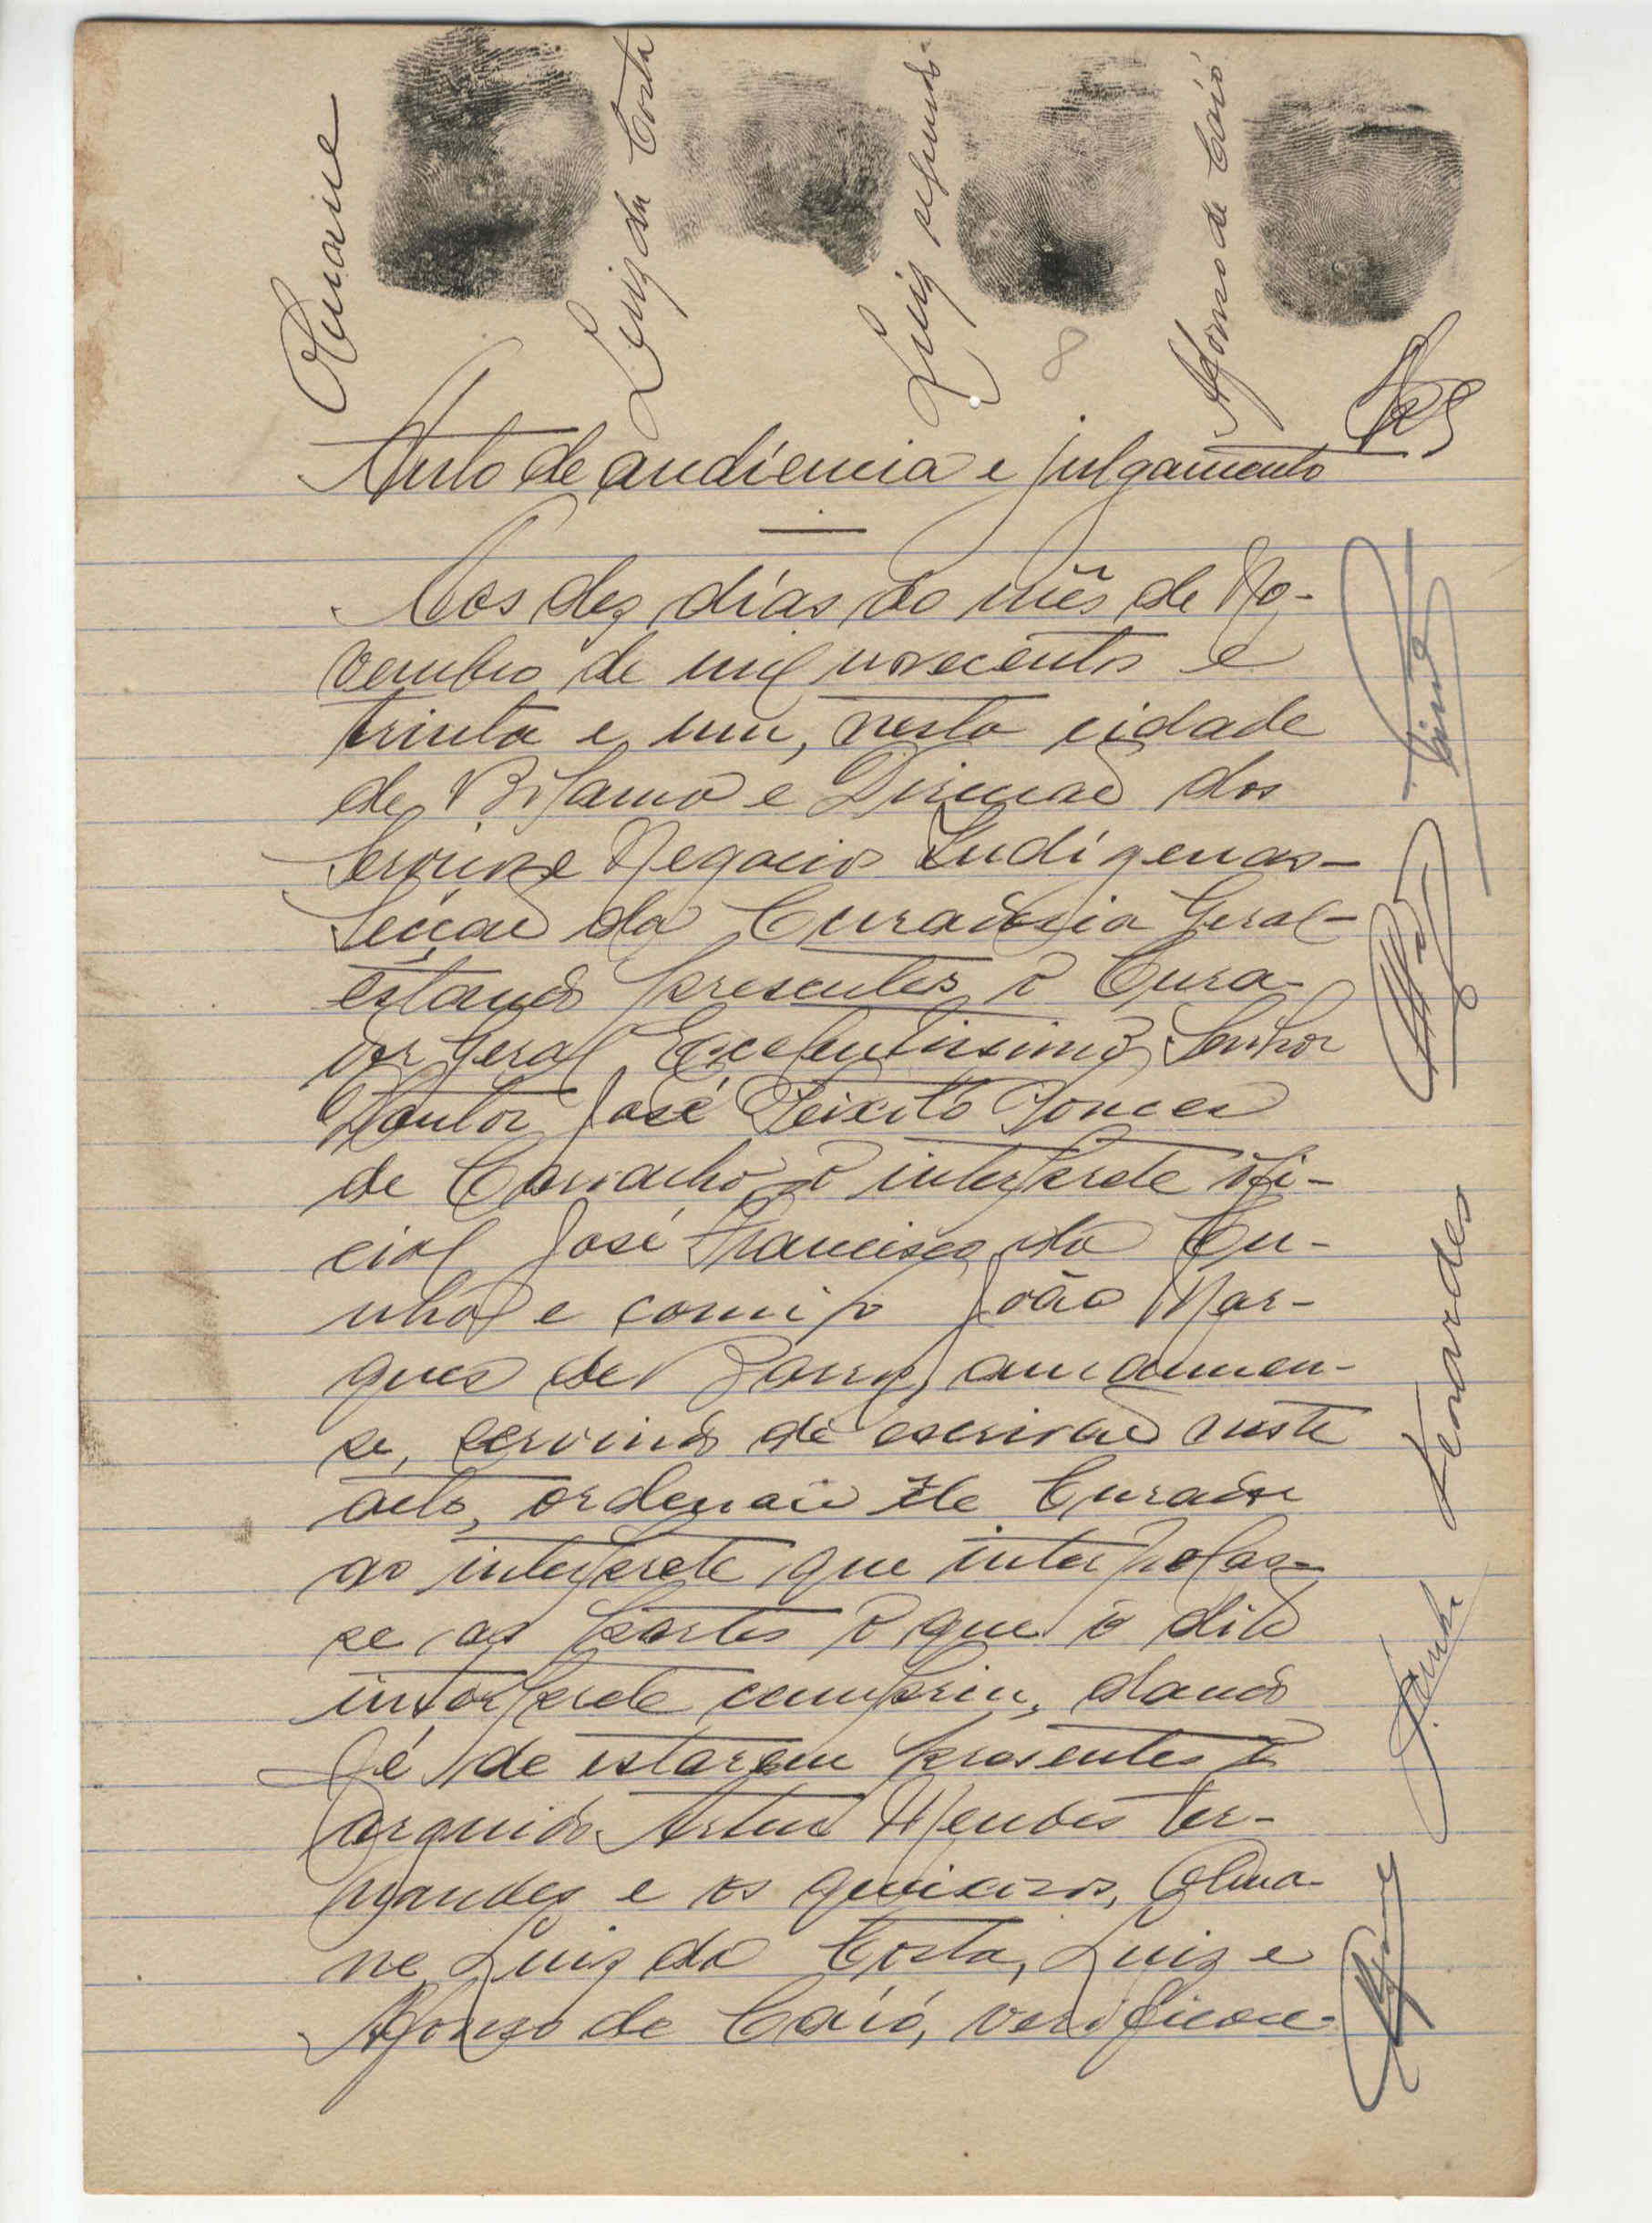 Osmane
Luiz da Costa
Luiz segundo
Afonso de Caió
8
Auto de audiencia e julgamento
Aos dez dias do mês de No-
vembro de mil novecentos e
trinta e um, nesta cidade
de Bolama e Direcção dos
Serviços e Negocios Indigenas-
Secção da Curadoria Geral-
estando presentes o Cura-
dor Geral Excelentissimo Senhor
Doutor José Peixoto Ponces
de Carvalho, o interprete ofi-
cial José Francisco da Cu-
nha e comigo João Mar-
ques de Barros, amanuen-
se, servindo de escrivão neste
acto, ordenou ele Curador
ao interprete que interpelas-
se as partes o que o dito
interprete cumpriu, dando
fé de estarem presentes o
arguido Artur Mendes Fer-
nandes e os queixosos, Osma-
ne, Luiz da Costa, Luiz e
Afonso de Caió, verificou-
Fernandes
Cunha